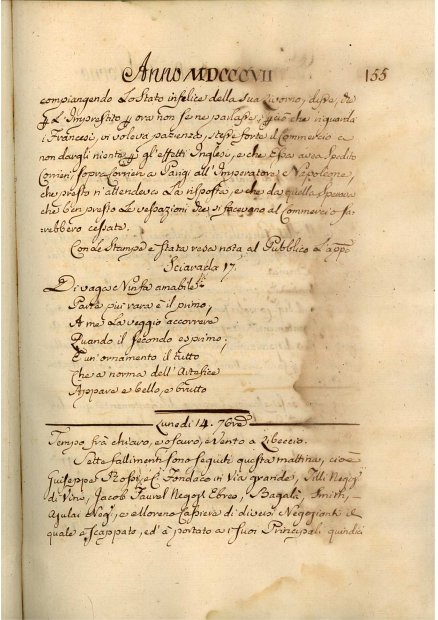 Anno MDCCCVII 155
compiangendo Lo Stato infelice della sua Livorno, disse, che
L'Imprestito ora non se ne parlasse; che riguarda
i Francesi, vi voleva pazienza, stesse forte il Commercio a
non dargli niente gl'effetti Inglesi, e che Essa avea Spedito
Corrieri sopra Corrieri a Parigi all'Imperatore Napoleone,
che presto n'attendeva La risposta, e che da quella Sperava
che ben presto Le vessazioni che si facevano al Commercio sa
rebbero cessate.
Con Le Stampe è stata resa nota al Pubblico L'app.
Sciarada 17.
Di vaga e Ninfa amabile
Parte più rara è il primo,
A me La veggio accorrere
Quando il secondo esprimo;
È un'ornamento il tutto
Che a norma dell'Artefice
Appare e bello, e brutto
Lunedì 14. 7bre
Tempo frà chiaro, e oscuro, e Vento a Libeccio.
Sette fallimenti sono seguiti questa mattina, cioè
Giuseppe Rossi, e C. Fondaco in Via grande, Tilli Negoz.
di Vino, Jacob Negoz. Ebreo, Smith,
Negoz. e Cassiere di diversi Negozianti il
quale è scappato, ed à portato a i suoi Principali quindici